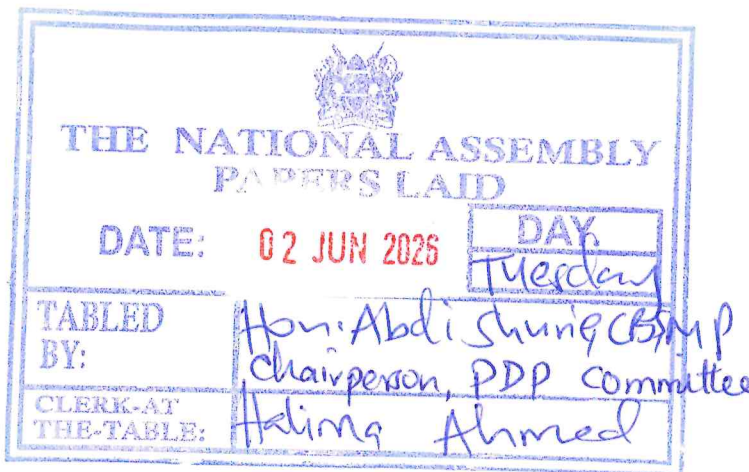 THE NATIONAL ASSEMBLY
PAPERS LAID
DATE: 02 JUN 2026
DAY.
Tuesday
TABLED BY:
Hon. Abdi Shurie, CBS, MP
Chairperson, PDP Committee
CLERK-AT THE-TABLE:
Halima Ahmed